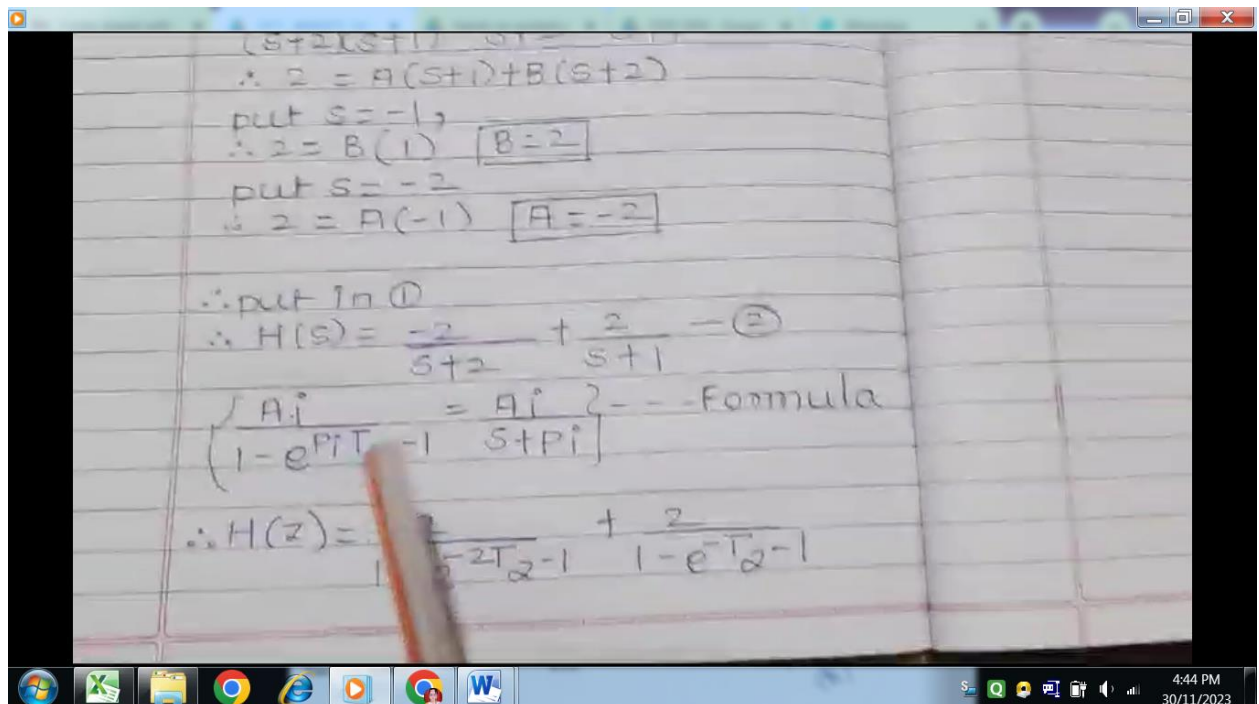 (S+2)(S+1)
∴ 2 = A(S+1)+B(S+2)
put S=-1,
∴ 2 = B(1) B=2
put S=-2
∴ 2 = A(-1) A=-2
∴ put in ①
∴ H(S) = -2/S+2 + 2/S+1 - ②
{Ai/1-e^PiT -1 = Ai/S+Pi} --- Formula
∴ H(Z) = /1 -2T z-1 + 2/1-e^-T z-1
4:44 PM
30/11/2023